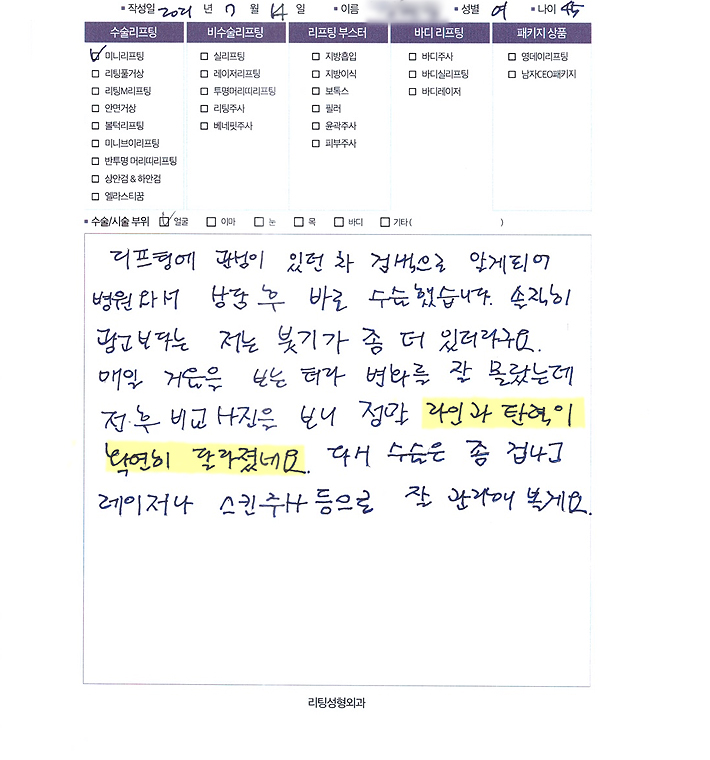 작성일 2021 년 7 월 14 일 이름 성별 여 나이 45
수술리프팅 비수술리프팅 리프팅 부스터 바디 리프팅 패키지 상품
미니리프팅 실리프팅 지방흡입 바디주사 영데이리프팅
리팅풀거상 레이저리프팅 지방이식 바디실리프팅 남자CEO패키지
리팅M리프팅 투명머리띠리프팅 보톡스 바디레이저
안면거상 리팅주사 필러
볼턱리프팅 베네핏주사 윤곽주사
미니브이리프팅 피부주사
반투명 머리띠리프팅
상안검 & 하안검
엘라스티꿈
수술/시술 부위 얼굴 이마 눈 목 바디 기타( )
리프팅에 관심이 있던 차 검색으로 알게되어
병원와서 상담 후 바로 수술했습니다. 솔직히
광고보다는 저는 붓기가 좀 더 있더라구요.
매일 거울을 보는 터라 변화를 잘 몰랐는데
전·후 비교사진을 보니 정말 라인과 탄력이
확연히 달라졌네요. 다시 수술은 좀 겁나고
레이저나 스킨주사 등으로 잘 관리해 볼게요.
리팅성형외과